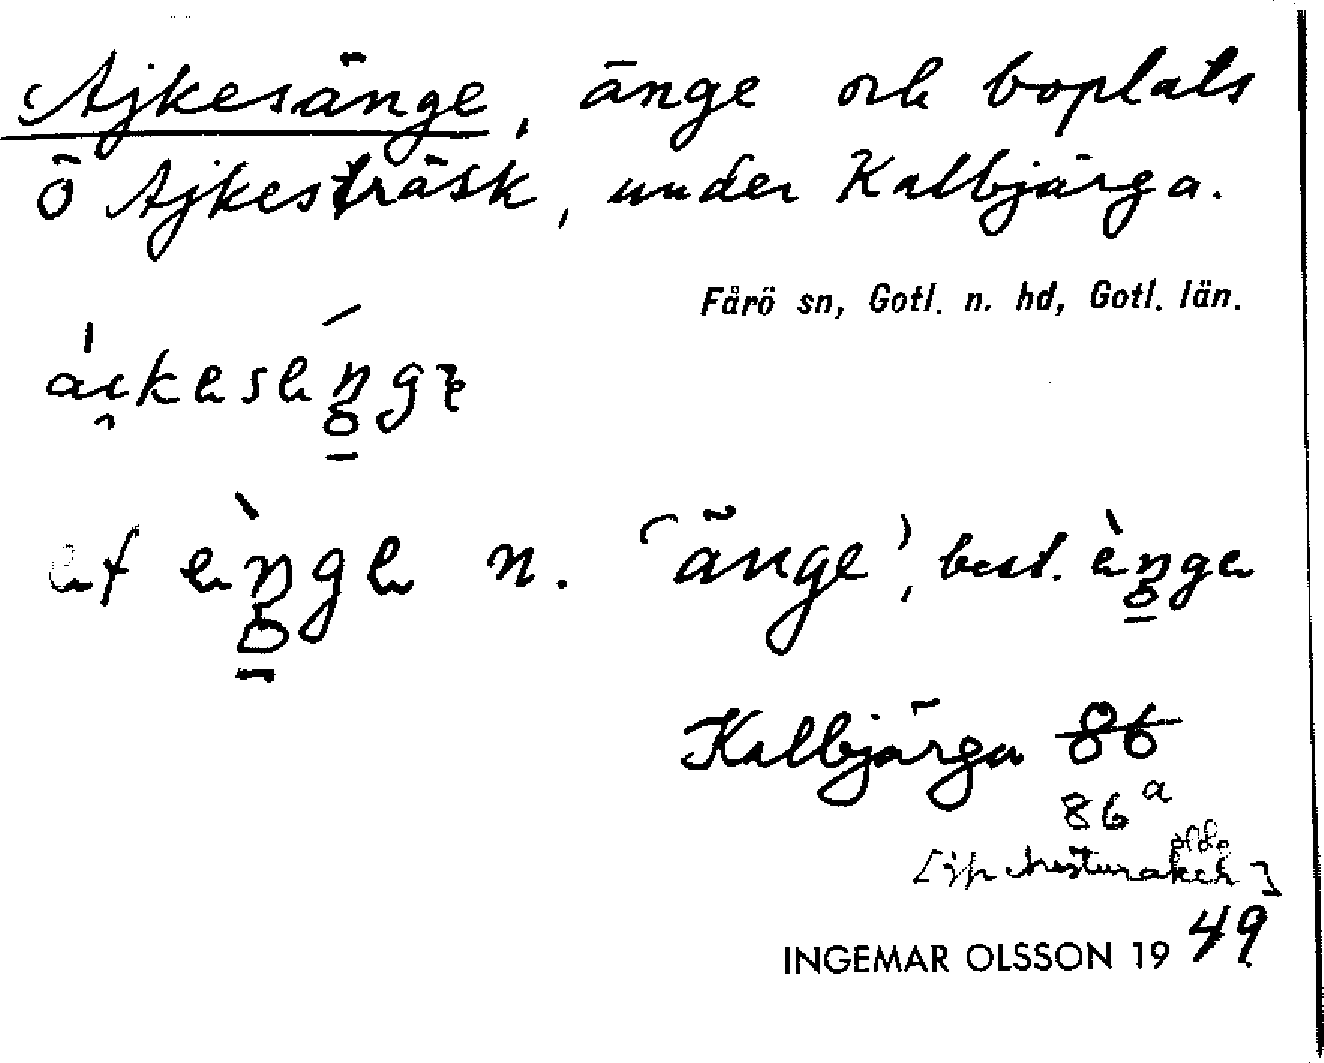 Ajkesänge, änge och boplats
Ö Ajkesträsk, under Kalbjärga.
Fårö sn, Gotl. n. hd, Gotl. län.
n. 'änge', best.
Kalbjärga 86
86 a
INGEMAR OLSSON 19 49